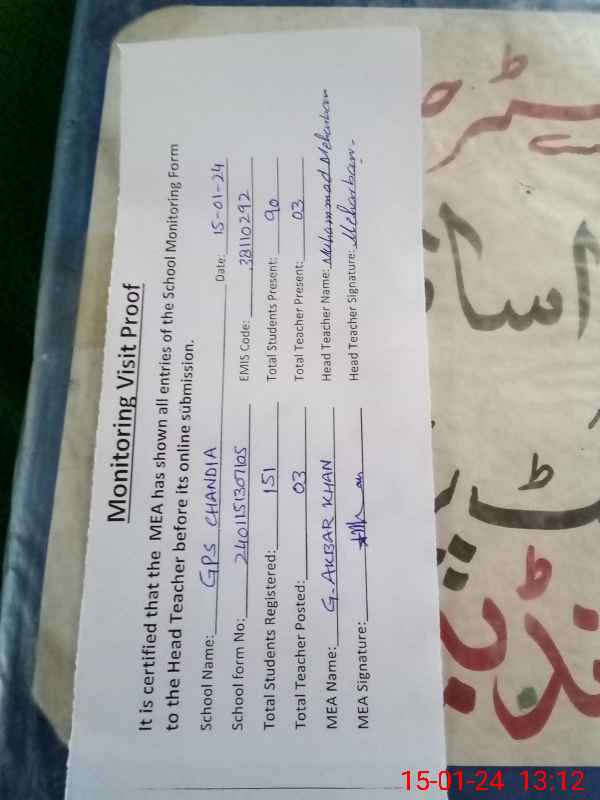 Monitoring Visit Proof
It is certified that the MEA has shown all entries of the School Monitoring Form
to the Head Teacher before its online submission.
School Name: GPS CHANDIA Date: 15-01-24
School form No: 2401151307105 EMIS Code: 38110292
Total Students Registered: 151 Total Students Present: 90
Total Teacher Posted: 03 Total Teacher Present: 03
MEA Name: G. AKBAR KHAN Head Teacher Name: Muhammad Meharban
MEA Signature: Head Teacher Signature: Meharban.
15-01-24 13:12